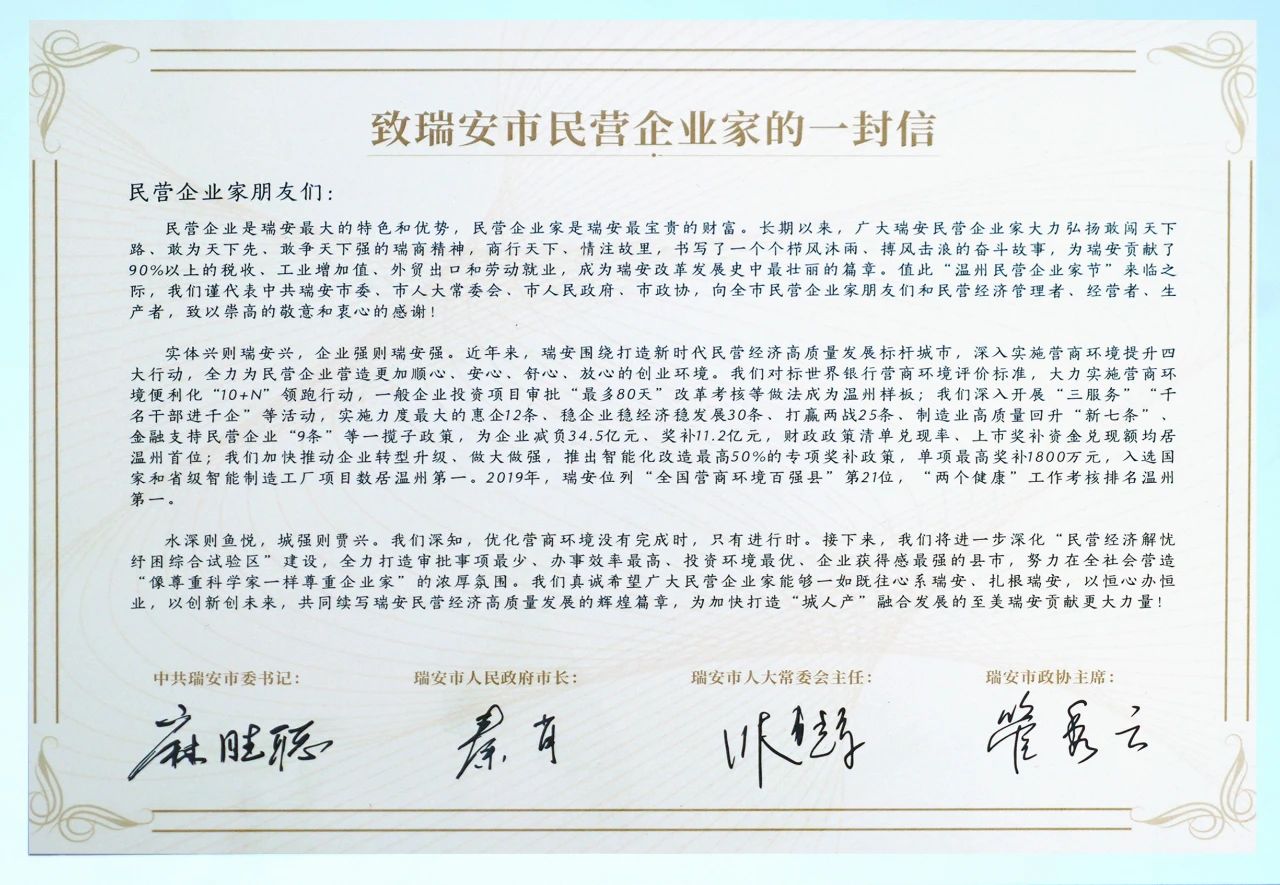 致瑞安市民营企业家的一封信
民营企业家朋友们：
民营企业是瑞安最大的特色和优势，民营企业家是瑞安最宝贵的财富。长期以来，广大瑞安民营企业家大力弘扬敢闯天下
路、敢为天下先、敢争天下强的瑞商精神，商行天下、情注故里，书写了一个个栉风沐雨、搏风击浪的奋斗故事，为瑞安贡献了
90%以上的税收、工业增加值、外贸出口和劳动就业，成为瑞安改革发展史中最壮丽的篇章。值此“温州民营企业家节”来临之
际，我们谨代表中共瑞安市委、市人大常委会、市人民政府、市政协，向全市民营企业家朋友们和民营经济管理者、经营者、生
产者，致以崇高的敬意和衷心的感谢！
实体兴则瑞安兴，企业强则瑞安强。近年来，瑞安围绕打造新时代民营经济高质量发展标杆城市，深入实施营商环境提升四
大行动，全力为民营企业营造更加顺心、安心、舒心、放心的创业环境。我们对标世界银行营商环境评价标准，大力实施营商环
境便利化“10+N”领跑行动，一般企业投资项目审批“最多80天”改革考核等做法成为温州样板；我们深入开展“三服务”“千
名干部进千企”等活动，实施力度最大的惠企12条、稳企业稳经济稳发展30条、打赢两战25条、制造业高质量回升“新七条”、
金融支持民营企业“9条”等一揽子政策，为企业减负34.5亿元、奖补11.2亿元，财政政策清单兑现率、上市奖补资金兑现额均居
温州首位；我们加快推动企业转型升级、做大做强，推出智能化改造最高50%的专项奖补政策，单项最高奖补1800万元，入选国
家和省级智能制造工厂项目数居温州第一。2019年，瑞安位列“全国营商环境百强县”第21位，“两个健康”工作考核排名温州
第一。
水深则鱼悦，城强则贾兴。我们深知，优化营商环境没有完成时，只有进行时。接下来，我们将进一步深化“民营经济解忧
纾困综合试验区”建设，全力打造审批事项最少、办事效率最高、投资环境最优、企业获得感最强的县市，努力在全社会营造
“像尊重科学家一样尊重企业家”的浓厚氛围。我们真诚希望广大民营企业家能够一如既往心系瑞安、扎根瑞安，以恒心办恒
业，以创新创未来，共同续写瑞安民营经济高质量发展的辉煌篇章，为加快打造“城人产”融合发展的至美瑞安贡献更大力量！
中共瑞安市委书记： 瑞安市人民政府市长： 瑞安市人大常委会主任： 瑞安市政协主席：
麻胜聪 秦肖 管秀云